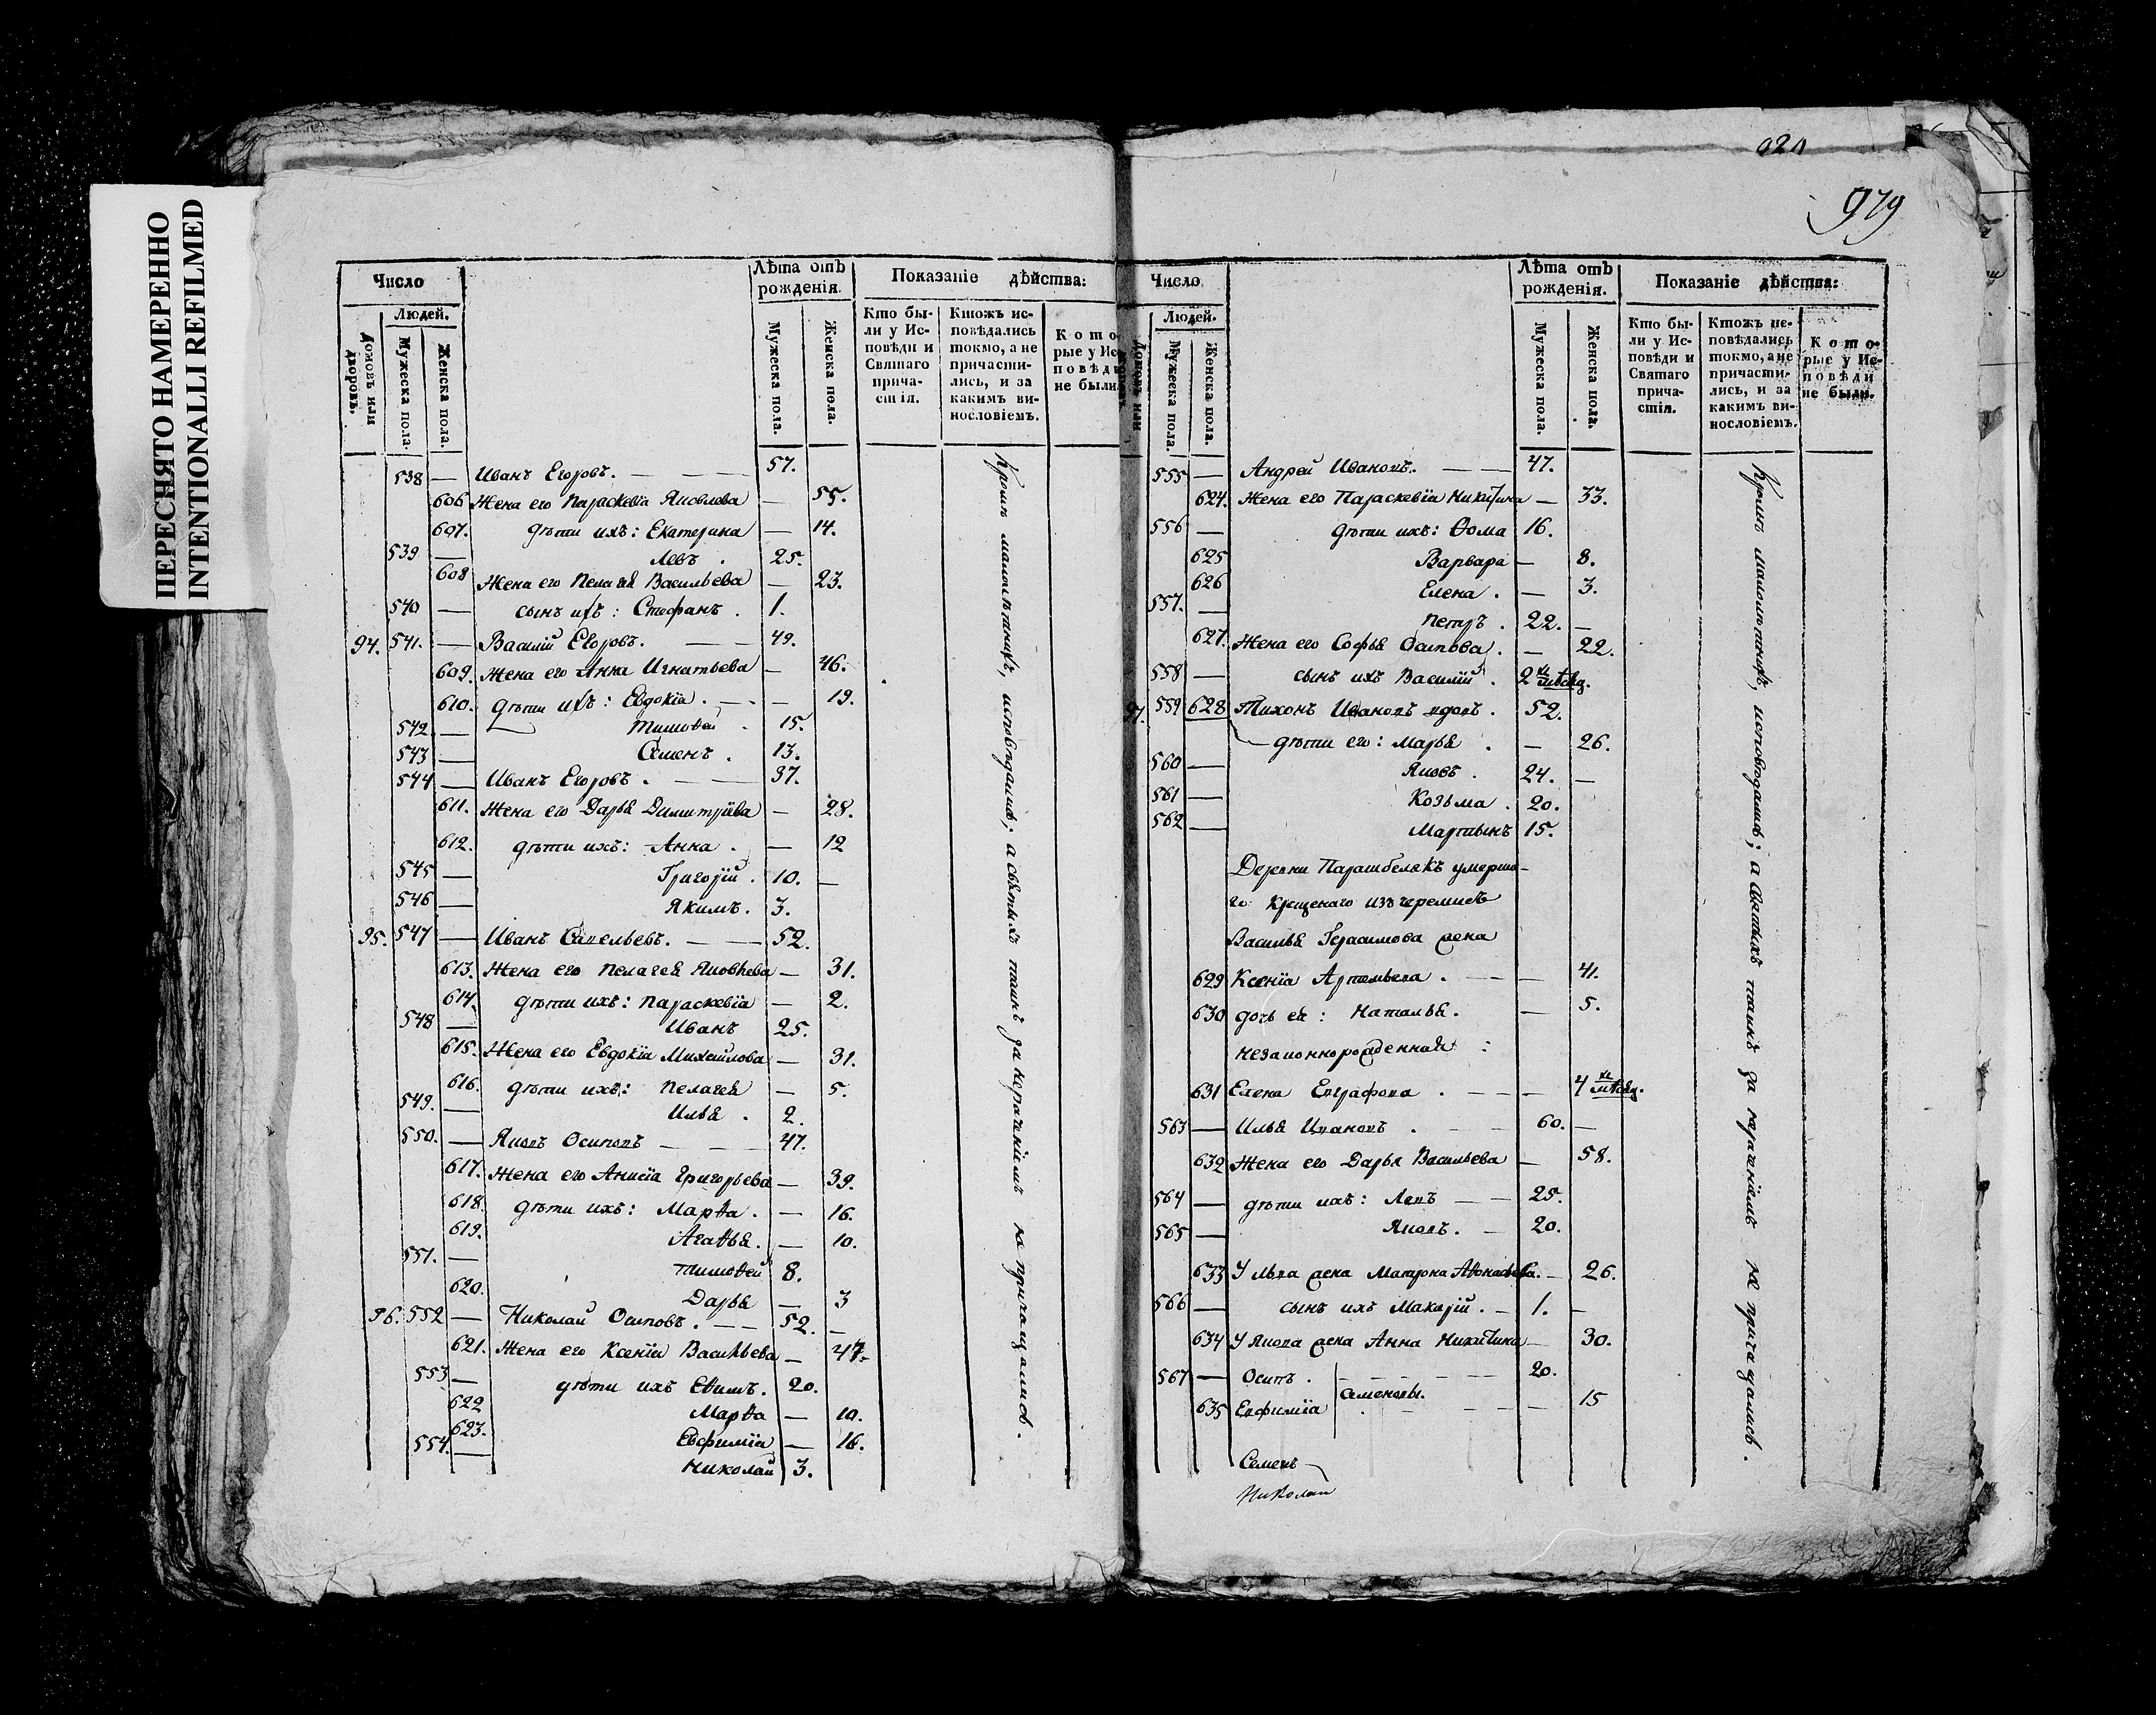 ПЕРЕСНЯТО НАМЕРЕННО
INTENTIONALLI REFILMED
979
Число
Людей.
Домовъ или дворовъ.
Мужеска пола.
Женска пола.
Лѣта отъ рожденія.
Мужеска пола.
Женска пола.
Показаніе дѣйства:
Кто были у Исповѣди и Святаго причастія.
Ктожъ исповѣдались токмо, а не причастились, и за какимъ винословіемъ.
Которые у Исповѣди не были.
538 — Иванъ Егоровъ. — 57.
606 Жена его Параскевіа Яковлева — 55.
607. дѣти ихъ: Екатерина — 14.
539 — Левъ . 25.
608 Жена его Пелагея Васильева — 23.
540 — сынъ ихъ: Стефанъ . 1.
94. 541. — Василій Егоровъ. — 49.
609. Жена его Анна Игнатьева — 46.
610. дѣти ихъ: Евдокіа . — 19.
542 — Тимоѳей . 15.
543 — Семенъ . 13.
544 — Иванъ Егоровъ . — 37.
611. Жена его Дарья Димитріева — 28.
612. дѣти ихъ: Анна . — 12
545 — Григорій . 10. —
546 — Якимъ . 3.
95. 547 — Иванъ Савельевъ. — 52.
613. Жена его Пелагея Яковлева — 31.
614. дѣти ихъ: Параскевіа — 2.
548 — Иванъ 25.
615. Жена его Евдокіа Михайлова — 31.
616. дѣти ихъ: Пелагея — 5.
549. — Илья . 2.
550. — Яковъ Осиповъ — 47.
617. Жена его Анисіа Григорьева — 39.
618. дѣти ихъ: Марѳа . — 16.
619. Агаѳья. — 10.
551. — Тимоѳей 8.
620. Дарья — 3
96. 552 — Николай Осиповъ. — 52. —
621. Жена его Ксеніа Васильева — 47.
553 — дѣти ихъ Евѳимъ. 20.
622 Марѳа — 10.
623. Евфиміа — 16.
554. — Николай 3.
Кромѣ малолѣтнихъ, исповѣдались; а святыхъ таинъ за нераченіемъ не причащались.
Число
Людей.
Домовъ или дворовъ.
Мужеска пола.
Женска пола.
Лѣта отъ рожденія.
Мужеска пола.
Женска пола.
Показаніе дѣйства:
Кто были у Исповѣди и Святаго причастія.
Ктожъ исповѣдались токмо, а не причастились, и за какимъ винословіемъ.
Которые у Исповѣди не были.
555 — Андрей Ивановъ. — 47.
624. Жена его Параскевіа Никитина — 33.
556 — дѣти ихъ: Ѳома 16.
625 Варвара — 8.
626 Елена . — 3.
557. — Петръ . 22. —
627. Жена его Софья Осипова . — 22.
558 — сынъ ихъ Василій . 2 хъ мѣсяц.
97. 559 628 Тихонъ Ивановъ вдовъ . 52.
дѣти его: Марья . — 26.
560 — Яковъ . 24. —
561 — Козьма . 20.
562 — Мартынъ 15.
Деревни Парашбелякъ умерша-
го крещенаго изъ черемисъ
Василья Герасимова жена
629 Ксеніа Артемьева . — 41.
630 дочь ея: Наталья. — 5.
незаконнорожденная :
631 Елена Евграфова . — 4 хъ мѣсяц.
563 — Илья Ивановъ . — 60. —
632 Жена его Дарья Васильева — 58.
564 — дѣти ихъ: Левъ — 25.
565 — Яковъ. — 20.
633 У Льва жена Матрона Аѳонасьева. — 26.
566 — сынъ ихъ Макарій . — 1. —
634 У Якова жена Анна Никитина — 30.
567 — Осипъ . — 20.
Семеновы.
635 Евфиміа . — 15
Кромѣ малолѣтнихъ, исповѣдались; а святыхъ таинъ за нераченіемъ не причащались.
Семенъ
Николаи